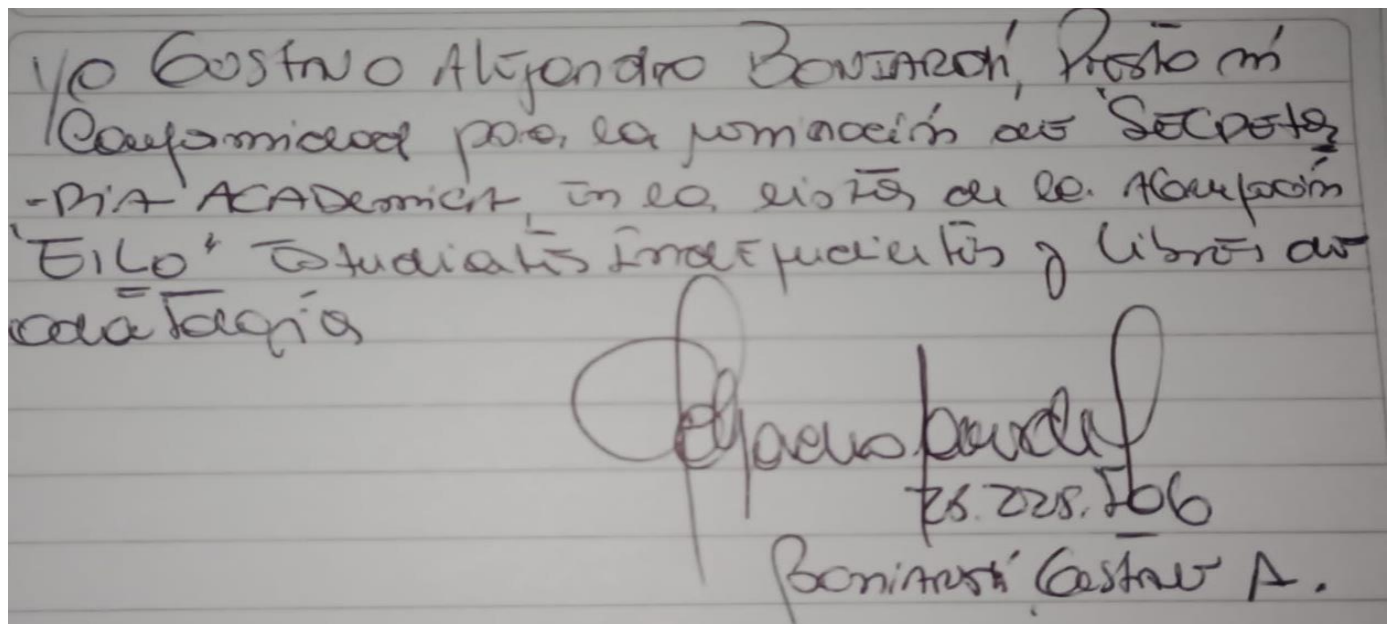 Yo Gustavo Alejandro BONIARDI, Presto mi
Conformidad para la nominación de "SECRETA
-RIA ACADEMICA, en la lista de la Agrupación
"EILO" Estudiantes Independientes y Libres de
odatología
28.228.706
Gustavo A.